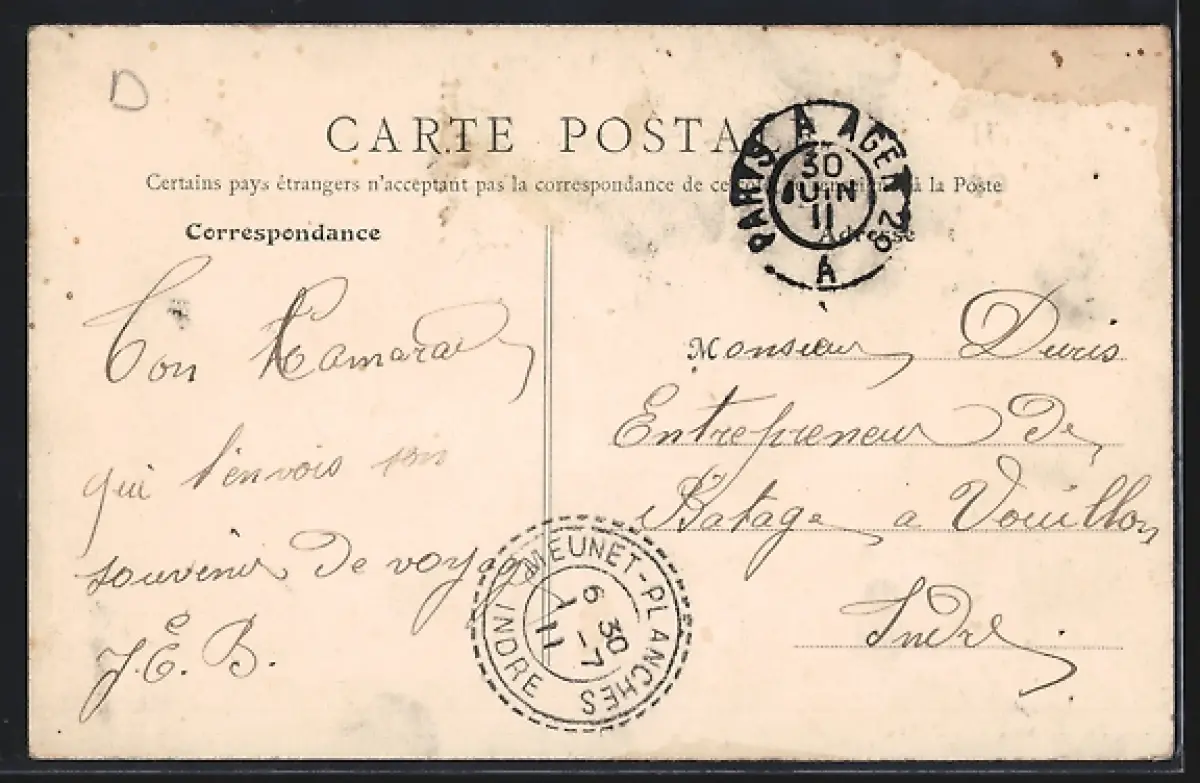 D
CARTE POSTALE
Certains pays étrangers n'acceptant pas la correspondance de ce côté, se renseigner à la Poste
Correspondance
Adresse
PARIS A AGEN 2°
30
JUIN
11
A
Ton Kamarade
qui t'envois son
souvenir de voyage
J. E. B.
Monsieur Duris
Entrepreneur De
Batage a Vouillon
Indre.
MEUNET-PLANCHES
INDRE
6 30
1 - 7
11